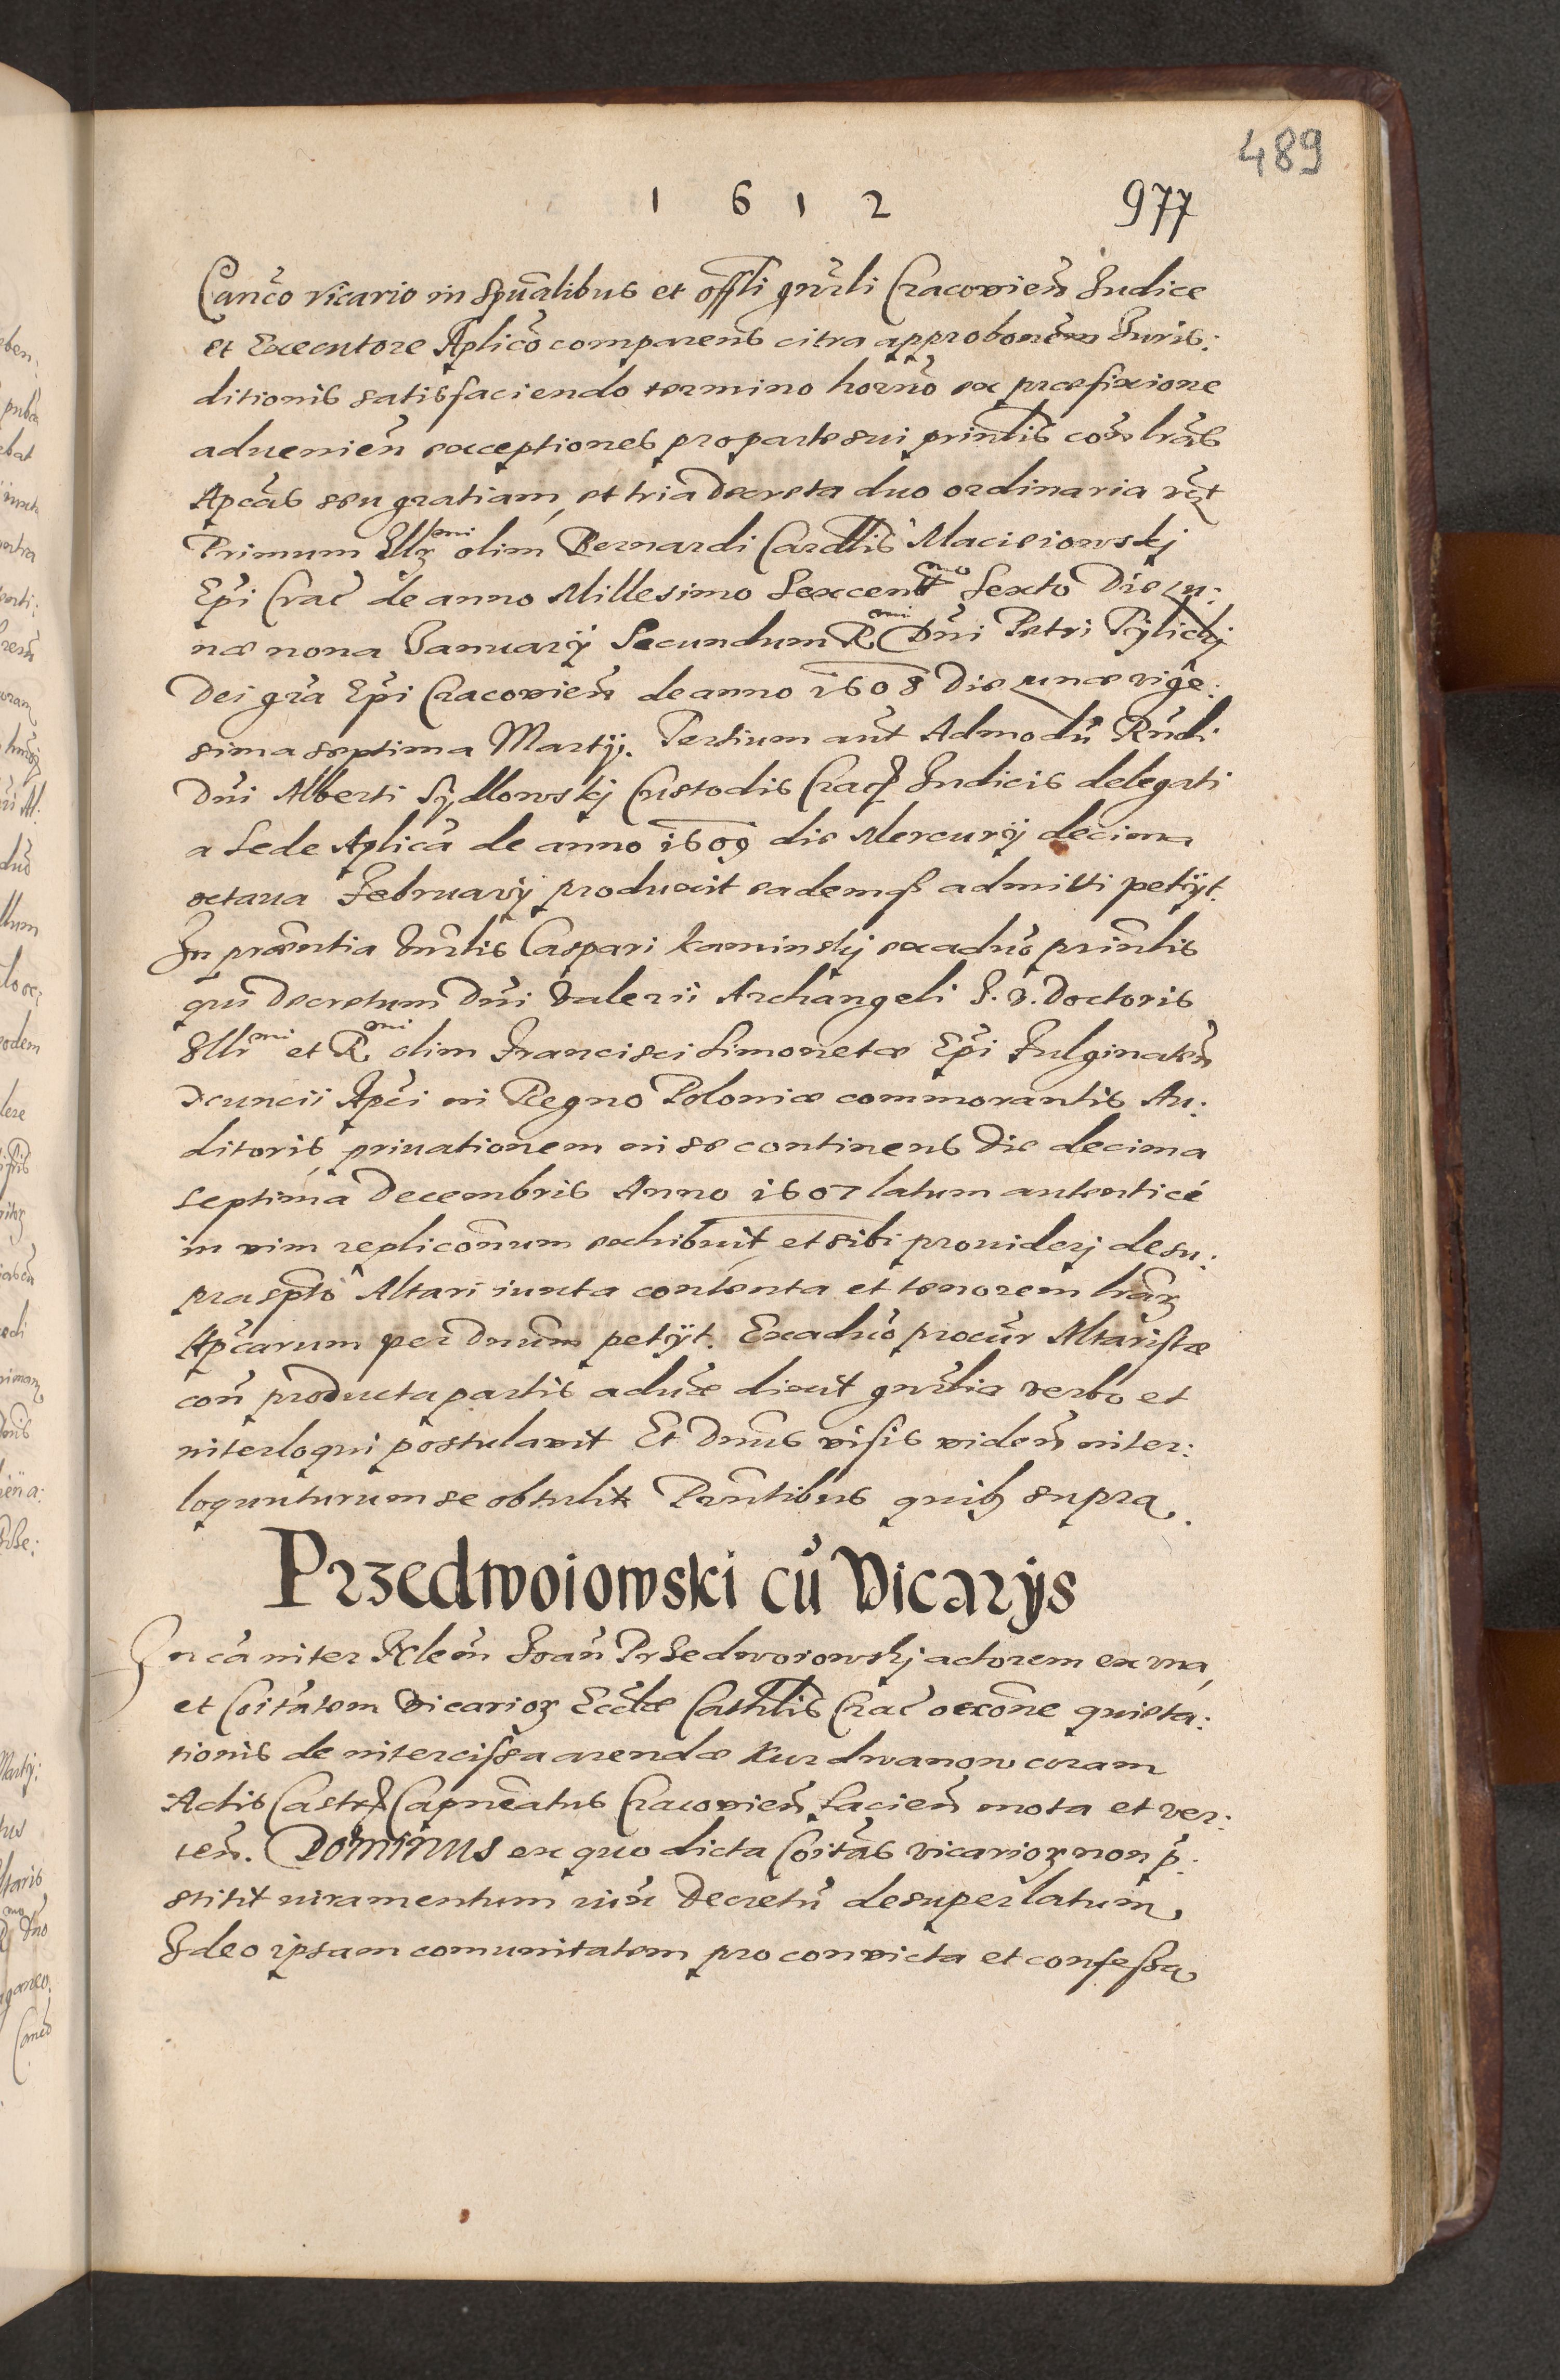 489
1 6 1 2 977
Canco vicario in spualibus et offli gnrli Cracovien Judice
et Executore Aplico comparens citra approbonem Juris:
ditionis satisfaciendo termino horno ex præfixione
aduenien exceptiones pro parte sui prinlis con lras
Apcas seu gratiam, et tria Decreta duo ordinaria vꝫt
Primum Illꝫmi olim Bernardi Cardlis Macieiowskj
Epi Crac de anno Millesimo Sexcentmo Sexto Die Lu:
næ nona January Secundum Rmi Dni Petri Tylickj
Dei gra Epi Cracovien de anno 1608 Die Lunæ vige:
sima septima Martij. Tertium aut Admodu Rndi
Dni Alberti Sydlowskj Custodis Crac Judicis delegati
a Sede Aplica de anno 1609 die Mercurij decima
octaua February produxit eademqꝫ admitti petijt.
In præntia Dnrlis Caspari Kaminskj ex aduo prinlis
qui Decretum Dni Valerii Archangeli J. V. Doctoris
Illimi et Rmi olim Francisci Simonetæ Epi Fulginaten
Nuncii Apci in Regno Poloniæ commorantis Au:
ditoris, priuationem in se continens Die decima
septima Decembris Anno 1607 latum autenticé
in vim repliconum exhibuit, et sibi prouiderj de su:
prascpto Altari iuxta contenta et tenorem lrarꝫ
Apcarum per Dnum petijt. Ex aduo procur Altaristæ
con producta partis aduæ dixit gnrlia verbo et
interloqui postulavit Et Dnus visis viden inter:
loquuturum se obtulit Prntibus quibꝫ supra.
Przedwoiowski cu Vicarijs
In ca inter Felem Joan Przedwoiowskj actorem ex vna,
et Coitatem Vicariorꝫ Ecclæ Cathlis Crac occone quieta:
tionis de intercissa arendæ Kurdwanow coram
Actis Castr Capneatus Cracovien facien mota et ver:
ten. Dominus ex quo dicta Coitas vicariorꝫ non p:
stitit iuramentum iux Decretu desuper latum,
Ideo ipsam comunitatem pro convicta et confessa,